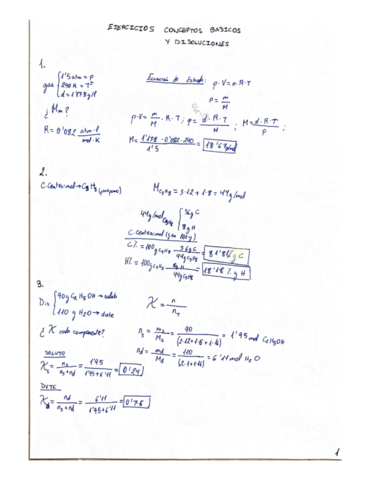 EJERCICIOS CONCEPTOS BÁSICOS
Y DISOLUCIONES
1.
gas { 1'5 atm = p
290 K = Tª
d = 1'178 g/l
¿ Mm ?
R = 0'082 atm·l / mol·K
Ecuación de Estado: p·V = n·R·T
n = m/M
p·V = m/M · R·T ; p = d·R·T / M ; M = d·R·T / p ;
M = 1'178 · 0'082 · 290 / 1'5 = 18'67 g/mol
2.
C. Centesimal → C3H8 (propano)
M C3H8 = 3·12 + 1·8 = 44 g/mol
44 g/mol C3H8 { 36 g C
8 g H
C. Centesimal (en 100 g)
C% = 100 g C3H8 · 36 g C / 44 g C3H8 = 81'81 % g C
H% = 100 g C3H8 · 8 g H / 44 g C3H8 = 18'18 % g H
3.
Dis { 90 g C2H5OH → soluto
110 g H2O → dste
X = n / nT
¿ X cada componente?
ns = ms / Ms = 90 / (2·12+1·6+1·4) = 1'95 mol C2H5OH
nd = md / Md = 110 / (2·1+1·16) = 6'11 mol H2O
SOLUTO
Xs = ns / ns + nd = 1'95 / 1'95 + 6'11 = 0'24
DSTE
Xd = nd / ns + nd = 6'11 / 1'95 + 6'11 = 0'76
1